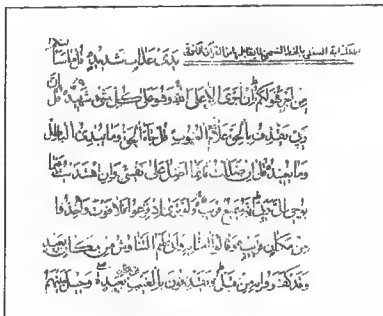 يدى عذاب شديد قل ما سألتكم
من اجر فهو لكم ان اجرى الا على الله وهو على كل شىء شهيد قل ان
ربى يقذف بالحق علام الغيوب قل جاء الحق وما يبدئ الباطل
وما يعيد قل ان ضللت فانما اضل على نفسى وان اهتديت فبما
يوحى الى ربى انه سميع قريب ولو ترى اذ فزعوا فلا فوت واخذوا
من مكان قريب وقالوا امنا به وانى لهم التناوش من مكان بعيد
وقد كفروا به من قبل ويقذفون بالغيب بعيد وحيل بينهم